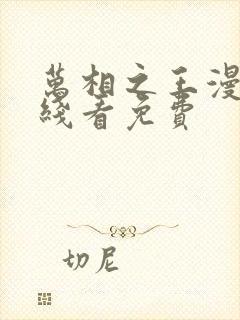 萬相之王漫
綫看免費
切尼